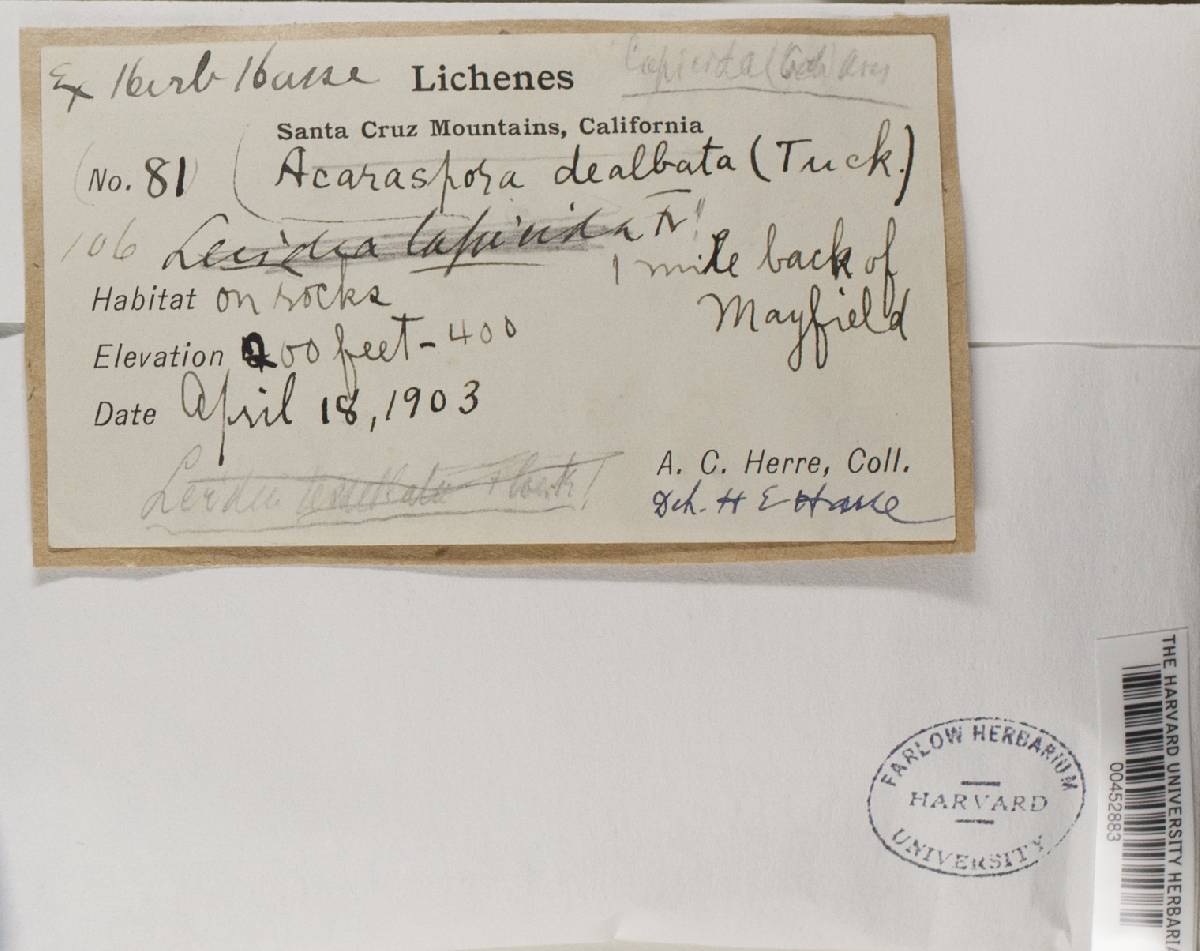 Ex Herb Hasse Lichenes
Santa Cruz Mountains, California
(No. 81) (Acaraspora dealbata (Tuck.)
106 Lecidea lapicida Fr
1 mile back of
Mayfield
Habitat on rocks
Elevation 200 feet - 400
Date April 18, 1903
Lecidea
A. C. Herre, Coll.
H E Hasse
FARLOW HERBARIUM
HARVARD
UNIVERSITY
THE HARVARD UNIVERSITY HERBARIA
00452883